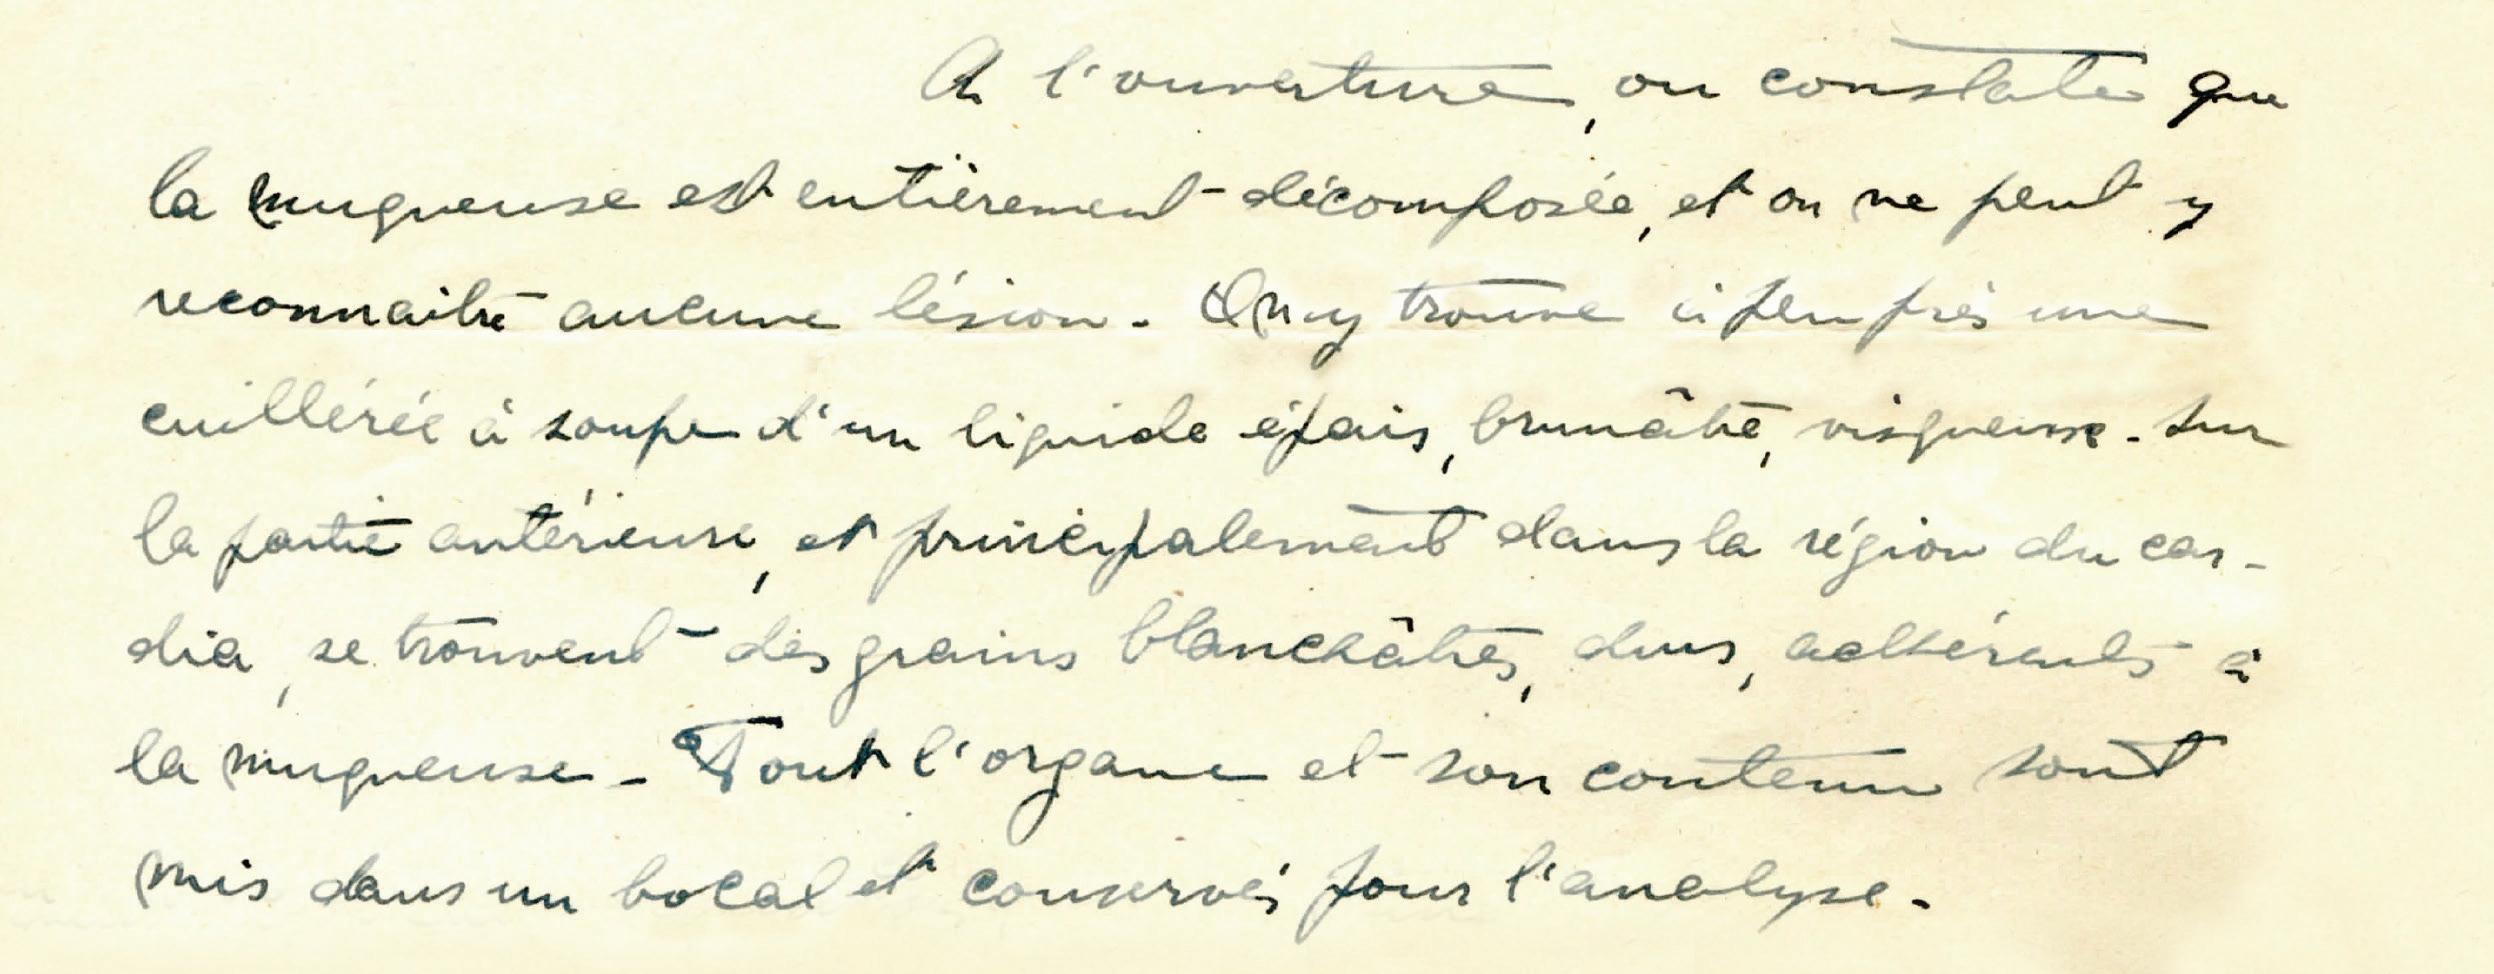 A l'ouverture, on constate que
la muqueuse est entièrement décomposée, et on ne peut y
reconnaitre aucune lésion. On y trouve à peu près une
cuillérée à soupe d'un liquide épais, brunâtre, visqueux. Sur
la partie antérieure, et principalement dans la région du car-
dia, se trouvent des grains blanchâtres, durs, adhérents à
la muqueuse. Tout l'organe et son contenu sont
mis dans un bocal et conservés pour l'analyse.